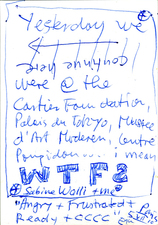 Yesterday we
were @ the
Cartier Foundation,
Palais du Tokyo, Musée
d'Art Moderen, Centre
Pompidou... i mean
WTF?
Sabine Walli + me
"Angry + Frustrated +
Ready + CCCC"